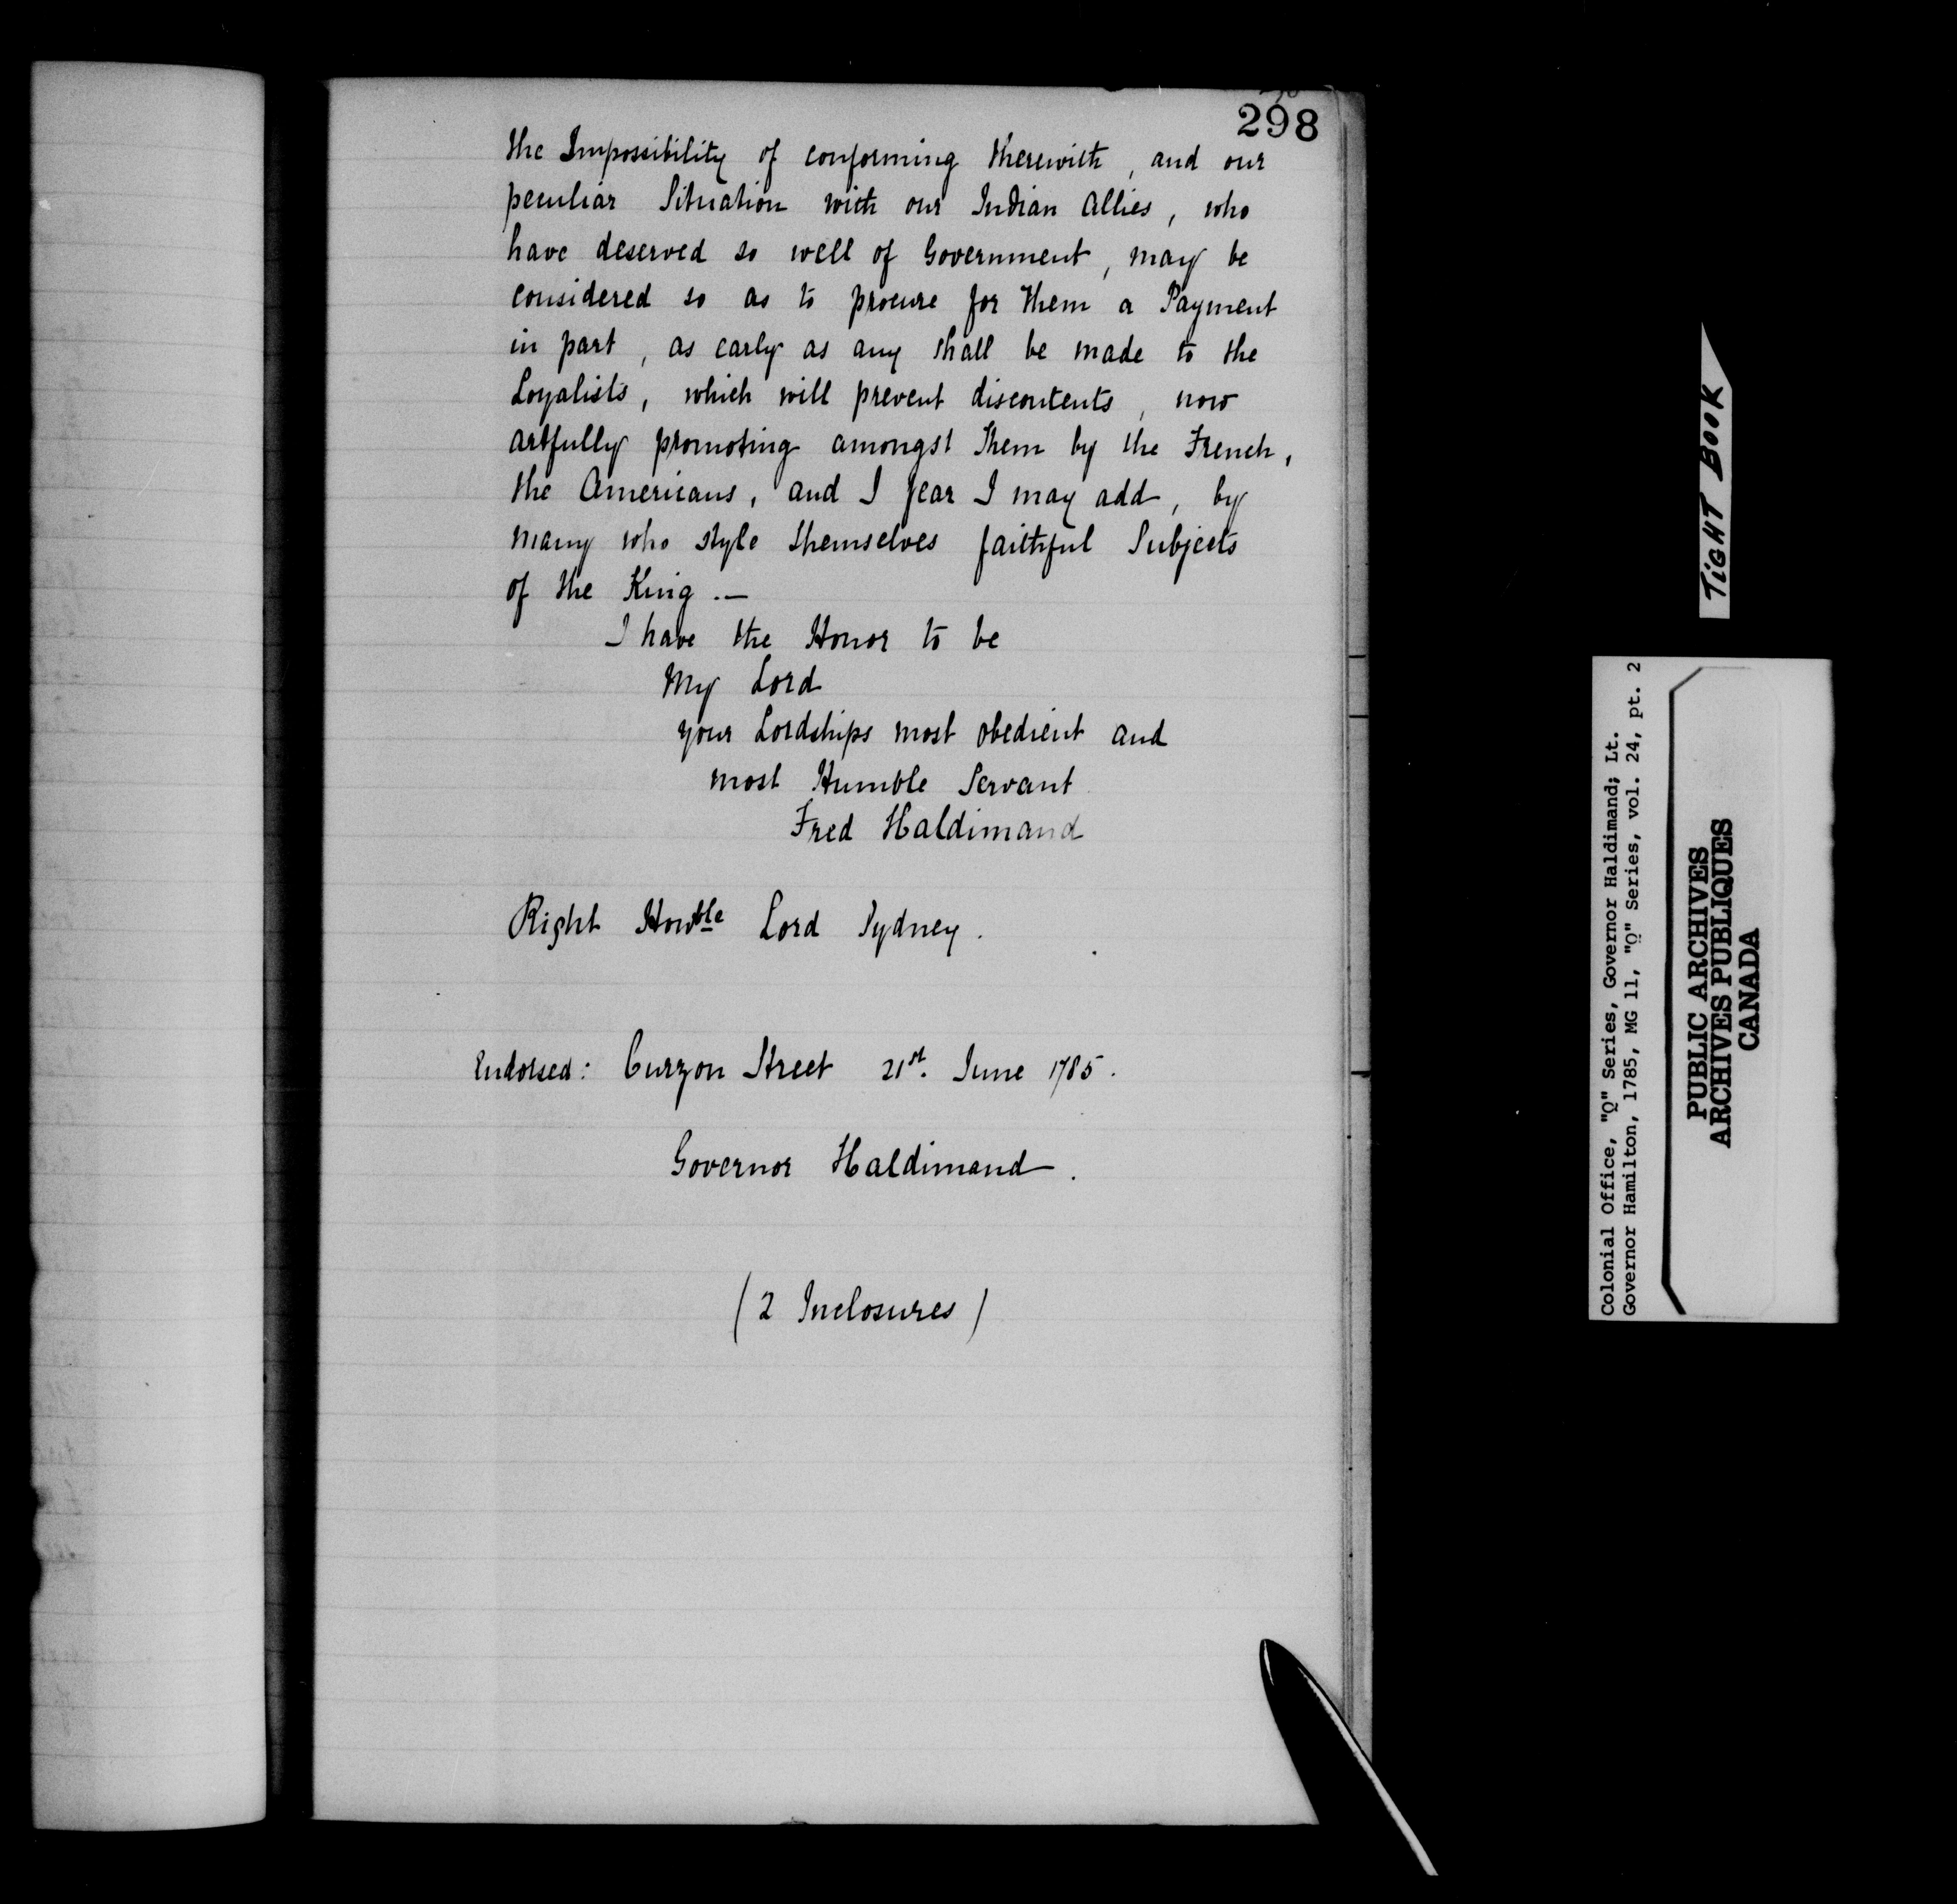 298
the Impossibility of conforming therewith, and our
peculiar Situation with our Indian Allies, who
have deserved so well of Government, may be
considered so as to procure for them a Payment
in part, as early as any shall be made to the
Loyalists, which will prevent discontents, now
artfully promoting amongst them by the French,
the Americans, and I fear I may add, by
many who style themselves faithful Subjects
of the King.—
I have the Honor to be
My Lord
your Lordships most obedient and
most Humble Servant
Fred Haldimand
Right Honble Lord Sydney.
Endorsed: Curzon Street 21st. June 1785.
Governor Haldimand.
(2 Inclosures)
TIGHT BOOK
Colonial Office, "Q" Series, Governor Haldimand; Lt.
Governor Hamilton, 1785, MG 11, "Q" Series, vol. 24, pt. 2
PUBLIC ARCHIVES
ARCHIVES PUBLIQUES
CANADA